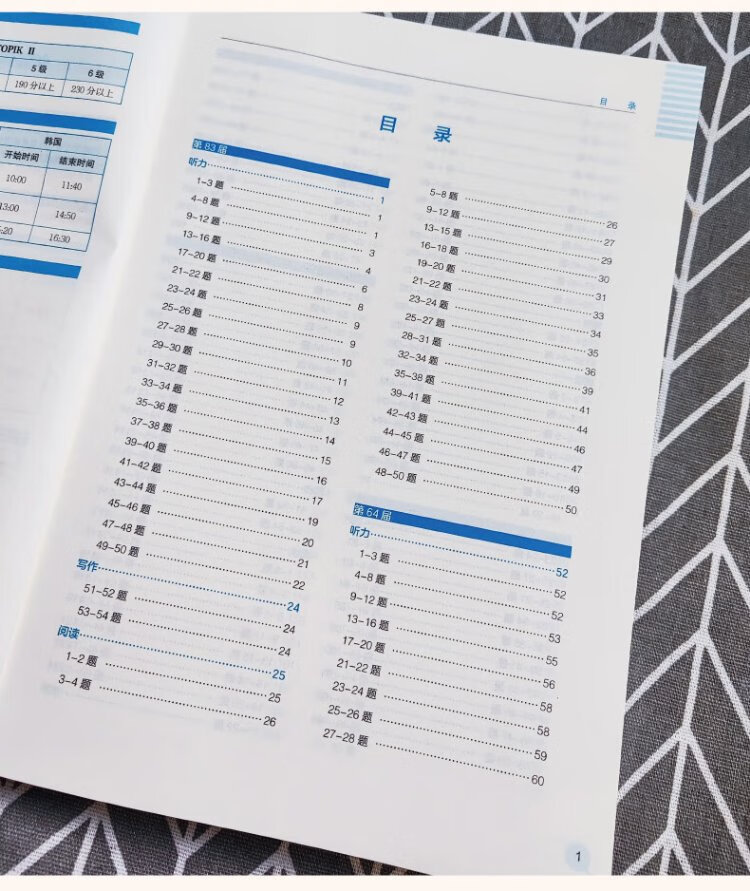 TOPIK II
5级 6级
190分以上 230分以上
韩国
开始时间 结束时间
10:00 11:40
13:00 14:50
16:30
目 录
目 录
第83届
听力 1
1-3 题 1
4-8 题 1
9-12 题 3
13-16 题 4
17-20 题 6
21-22 题 8
23-24 题 9
25-26 题 9
27-28 题 10
29-30 题 11
31-32 题 12
33-34 题 13
35-36 题 14
37-38 题 15
39-40 题 16
41-42 题 17
43-44 题 19
45-46 题 20
47-48 题 21
49-50 题 22
写作 24
51-52 题 24
53-54 题 24
阅读 25
1-2 题 25
3-4 题 26
5-8 题 26
9-12 题 27
13-15 题 29
16-18 题 30
19-20 题 31
21-22 题 33
23-24 题 34
25-27 题 35
28-31 题 36
32-34 题 39
35-38 题 41
39-41 题 44
42-43 题 46
44-45 题 47
46-47 题 49
48-50 题 50
第64届
听力 52
1-3 题 52
4-8 题 52
9-12 题 53
13-16 题 55
17-20 题 56
21-22 题 58
23-24 题 58
25-26 题 59
27-28 题 60
1